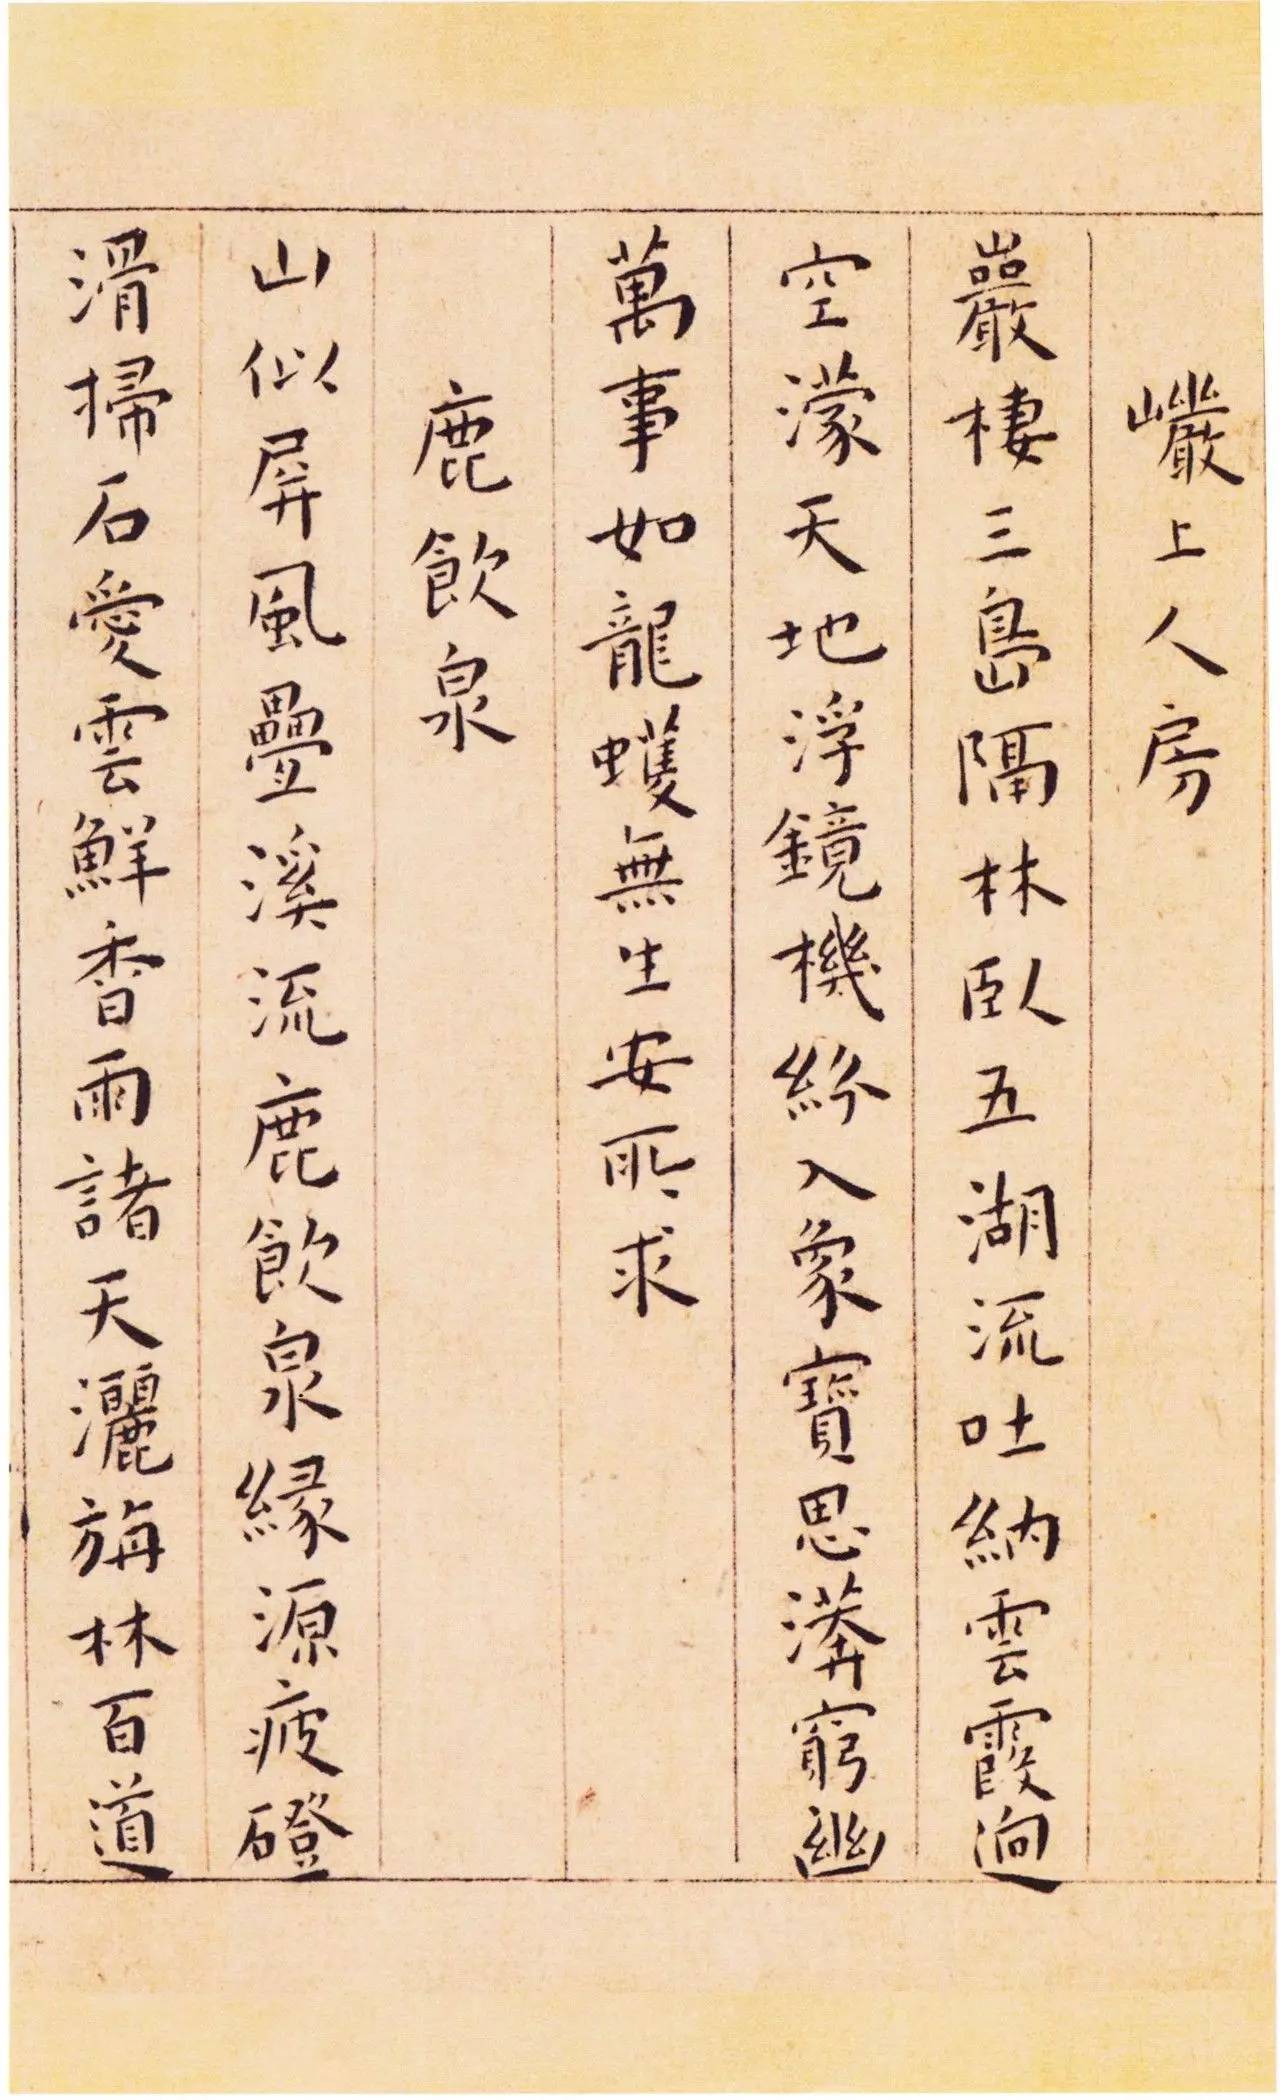 巘上人房
巖棲三島隔林臥五湖流吐納雲霞迥
空濛天地浮鏡機紛入象寶思漭窮幽
萬事如龍蠖無生安所求
鹿飲泉
山似屏風疊溪流鹿飲泉緣源疲磴
滑掃石愛雲鮮香雨諸天灑旃林百道